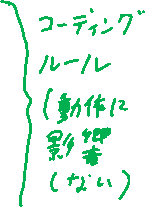 コーディング
ルール
(動作に
影響
(ない)